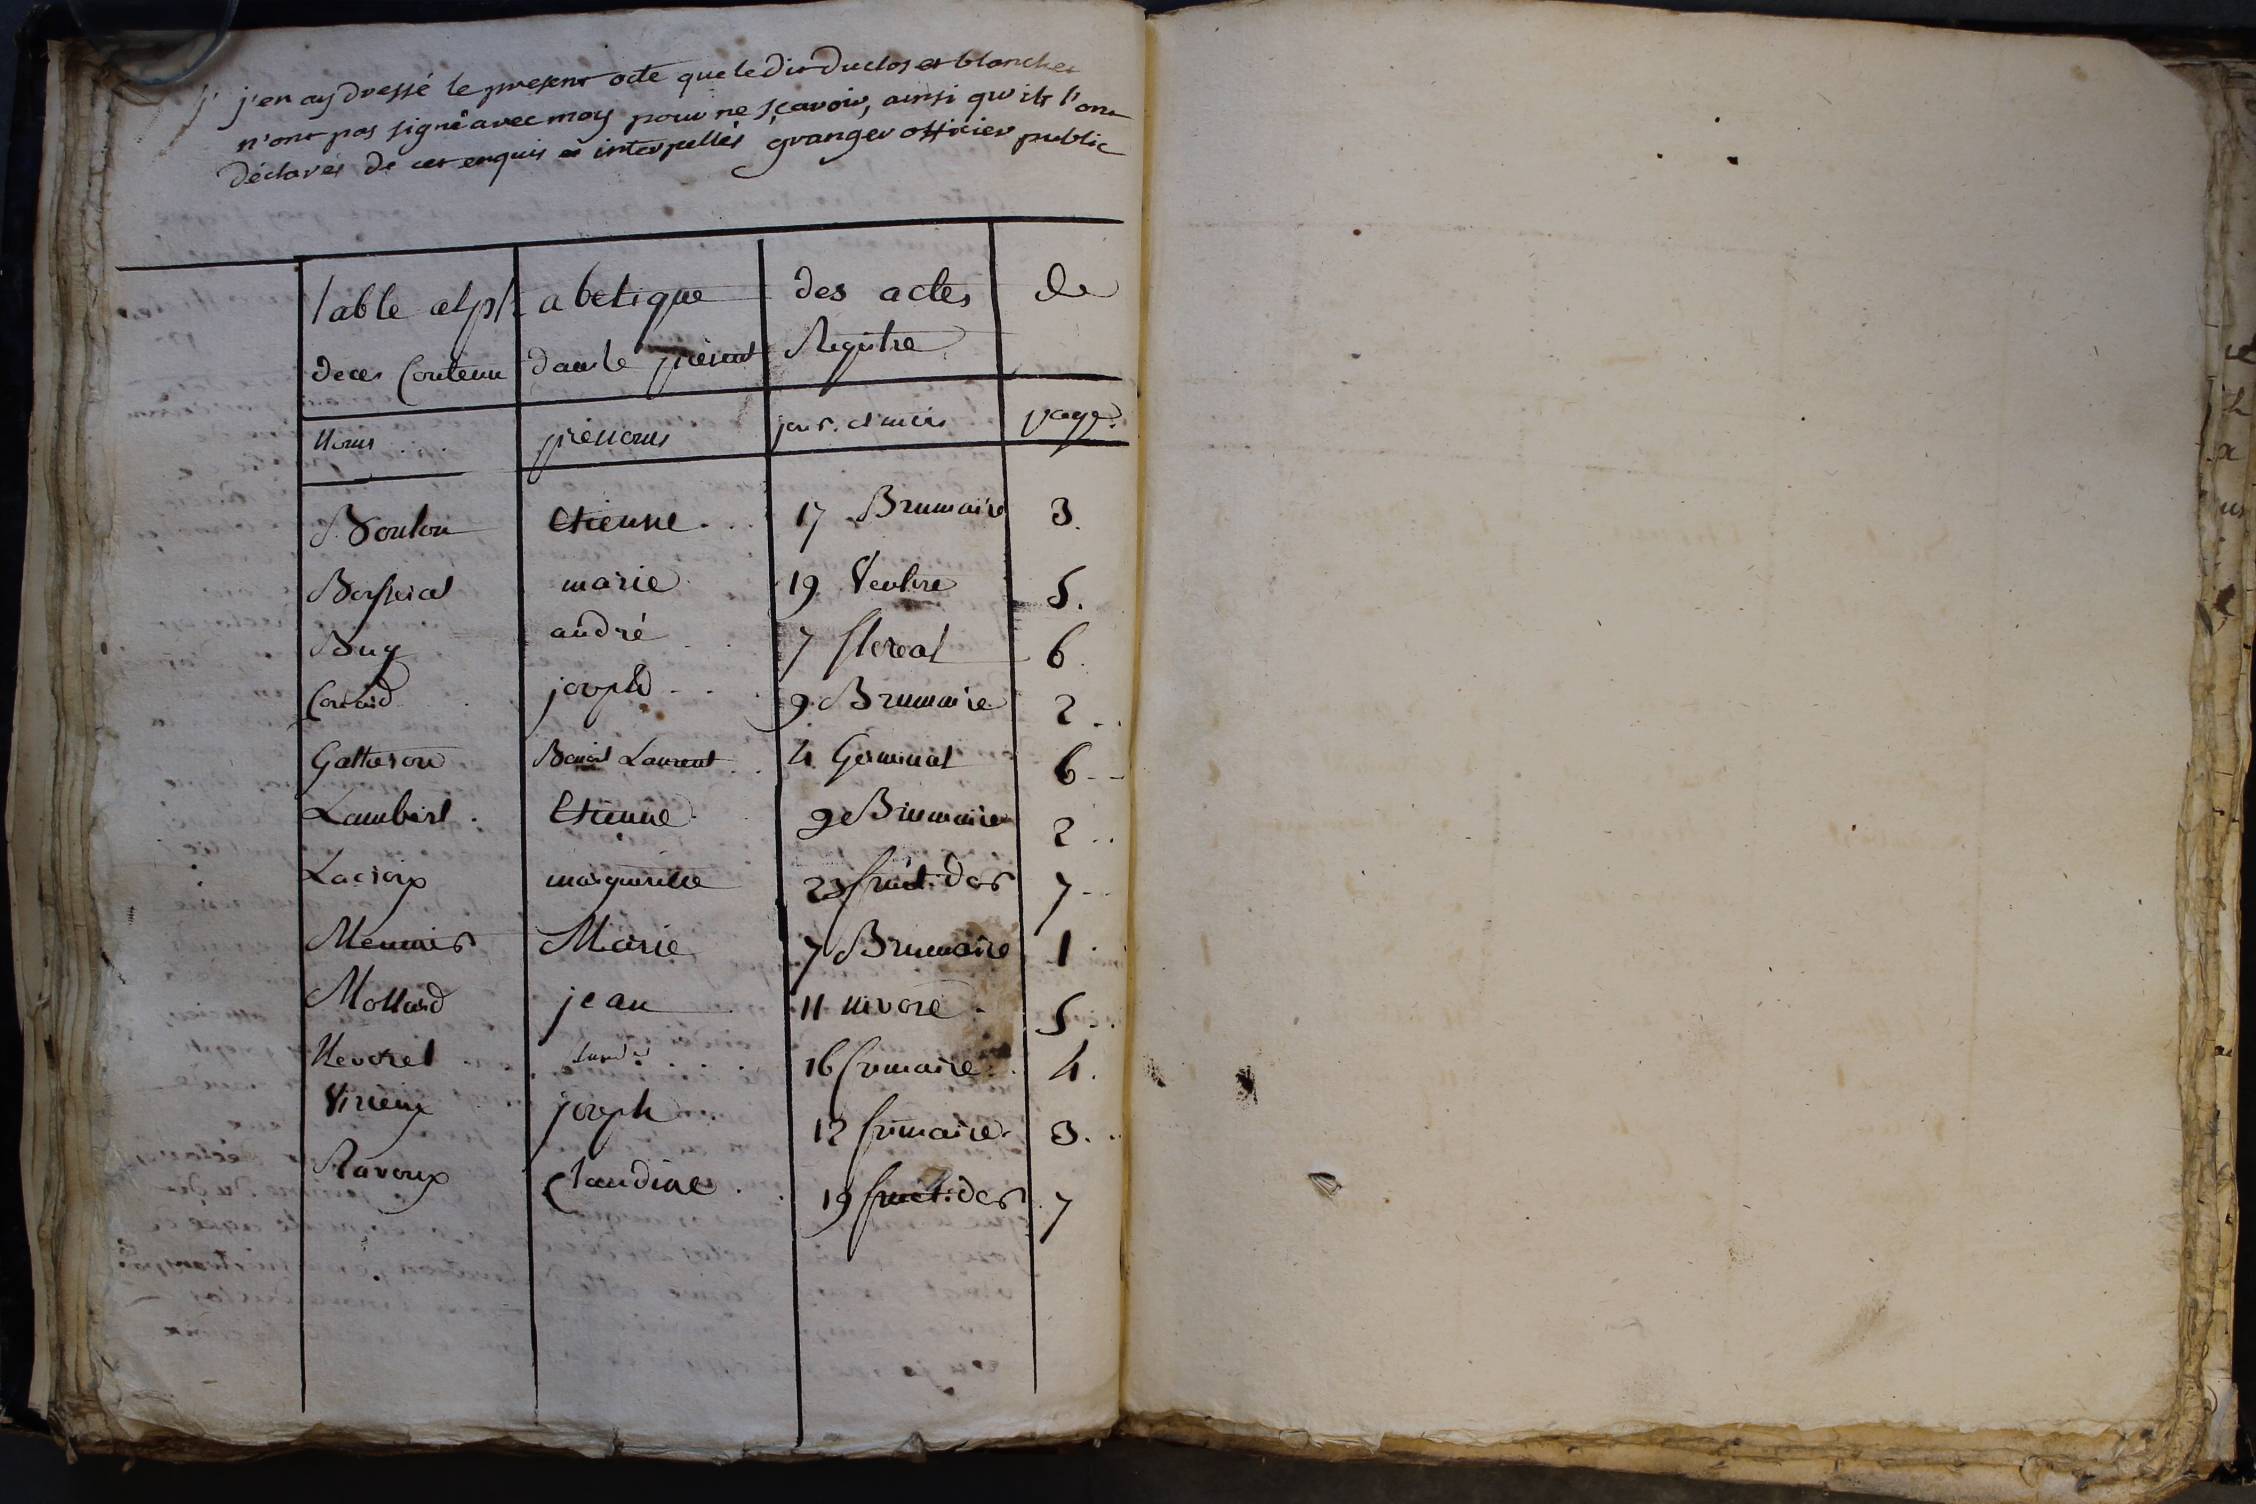 j'en ay dressé le present acte que ledit duclos et blanchet
n'ont pas signé avec moy pour ne sçavoir, ainsi qu'ils l'ont
déclarés de cet enquis et interpellés granger officier public
table alphabetique des actes de
deces contenu dans le présent Registre
Noms prénoms jour et mois page
Boulon etienne 17 Brumaire 3
marie 19 Ventose 5
Buy andré 7 floreal 6
joseph 9 Brumaire 2
Galtaron Benoit Laurent 4 Germinal 6
Lambert Etienne 9e Brumaire 2
Lacroix margueritte 23 fructidor 7
Meunier Marie 7 Brumaire 1
Mollard jean 11 nivose 5
Neyret 16 frimaire 4
Virieux joseph 12 frimaire 3
Ravoux Claudine 19 fructidor 7